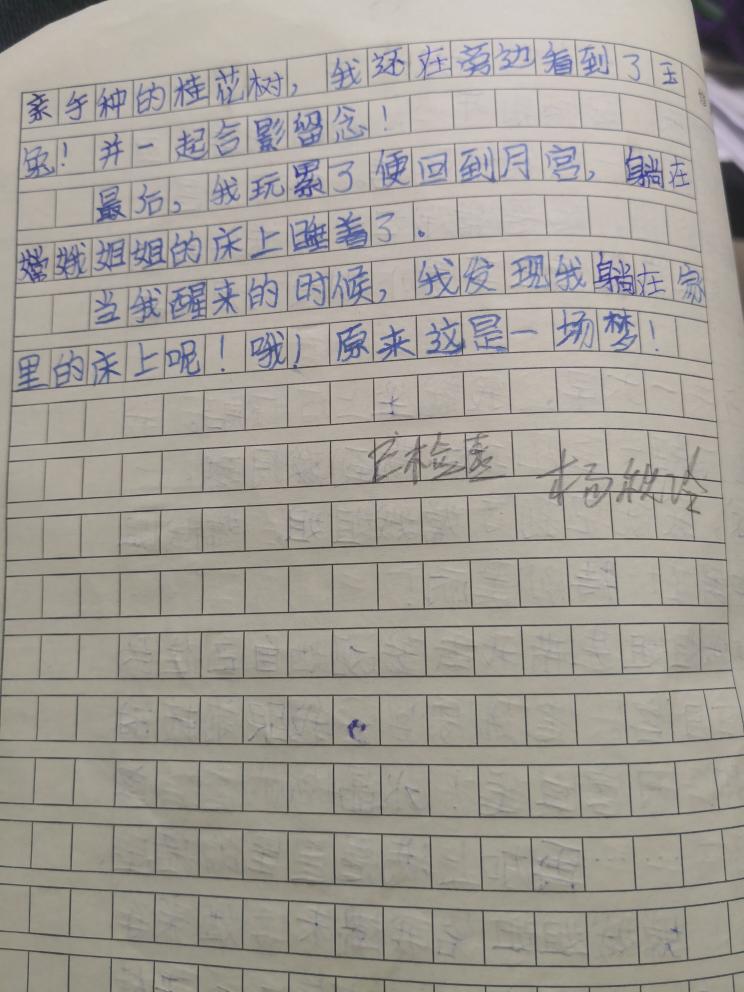 亲手种的桂花树，我还在旁边看到了玉
兔！并一起合影留念！
最后，我玩累了便回到月宫，躺在
嫦娥姐姐的床上睡着了。
当我醒来的时候，我发现我躺在家
里的床上呢！哦！原来这是一场梦！
已检查